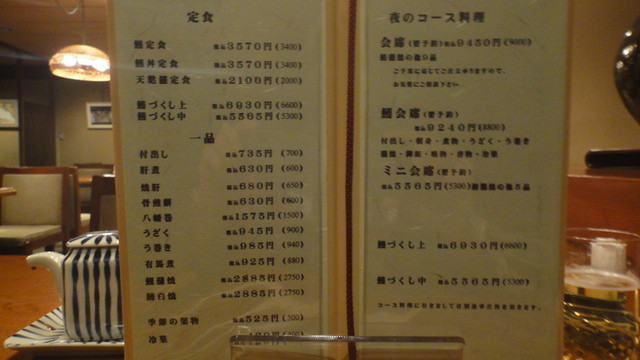 定食
鰻定食 税込3570円(3400)
鰻丼定食 税込3570円(3400)
天麩羅定食 税込2100円(2000)
鰻づくし上 税込6930円(6600)
鰻づくし中 税込5565円(5300)
一品
付出し 税込735円(700)
肝煮 税込630円(600)
焼肝 税込680円(650)
骨煎餅 税込630円(600)
八幡巻 税込1575円(1500)
うざく 税込945円(900)
う巻き 税込985円(940)
有馬煮 税込925円(880)
鰻蒲焼 税込2885円(2750)
鰻白焼 税込2885円(2750)
季節の果物 税込525円(500)
冷菓
夜のコース料理
会席(要予約)税込9450円(9000)
ご予算に応じてご注文承りますので、
お気軽にご相談下さい
鰻会席(要予約)
税込9240円(8800)
付出し・刺身・煮物・うざく・う巻き
蒲焼・御飯・吸物・香物・冷菓
ミニ会席(要予約)
税込5565円(5300)
鰻づくし上 税込6930円(6600)
鰻づくし中 税込5565円(5300)
コース料理に